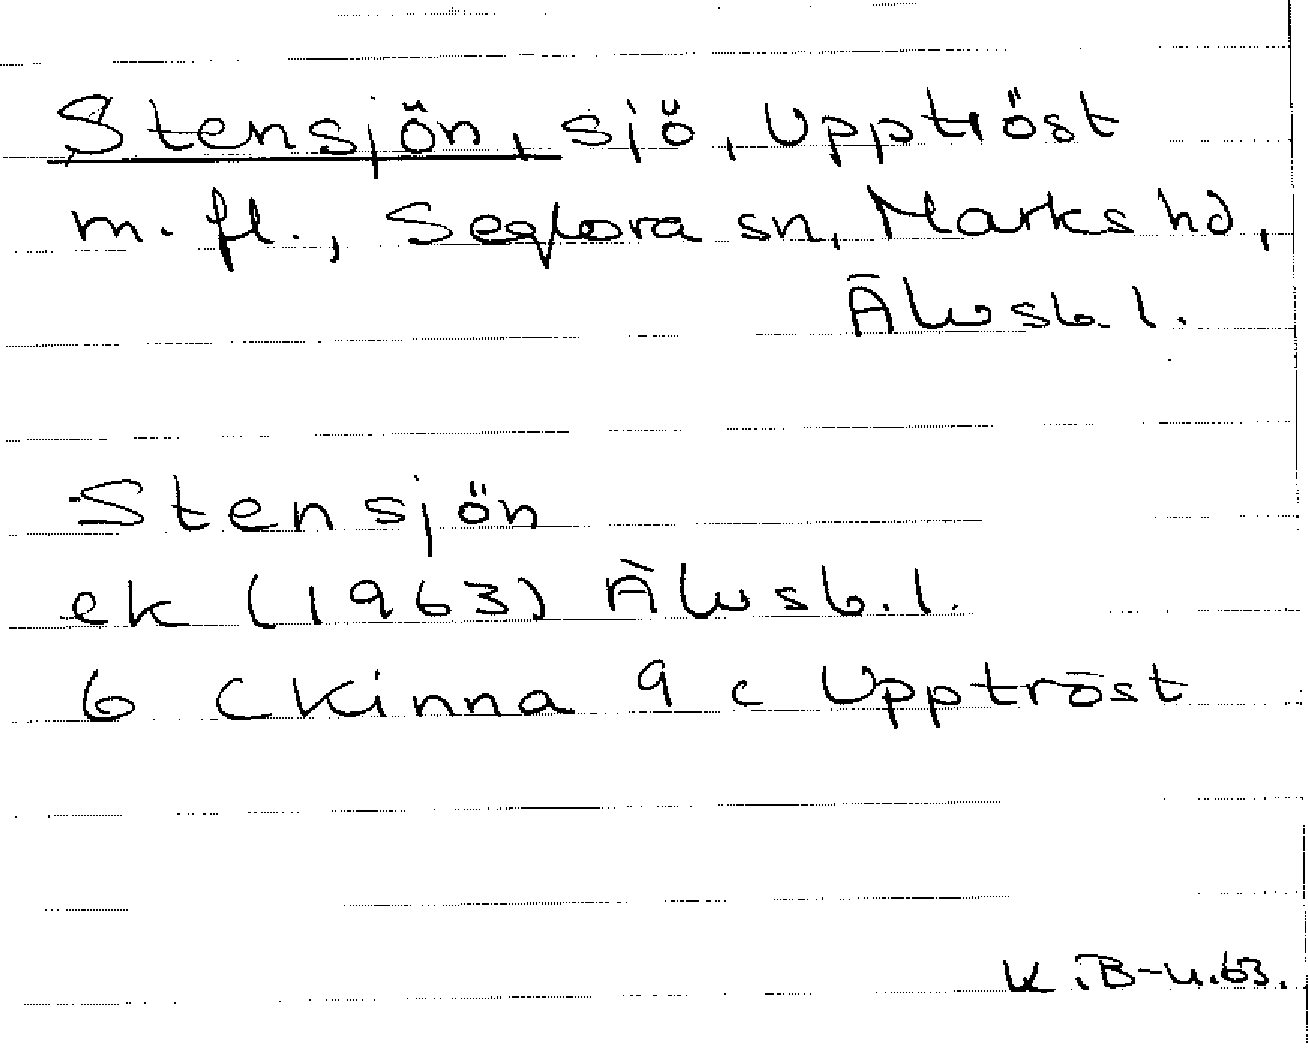 Stensjön, sjö, Upptröst
m. fl., Seglora sn, Marks hd,
Älvsb. l.
Stensjön
ek (1963) Älvsb. l.
6 C Kinna 9 c Upptröst
K.B-u.63.